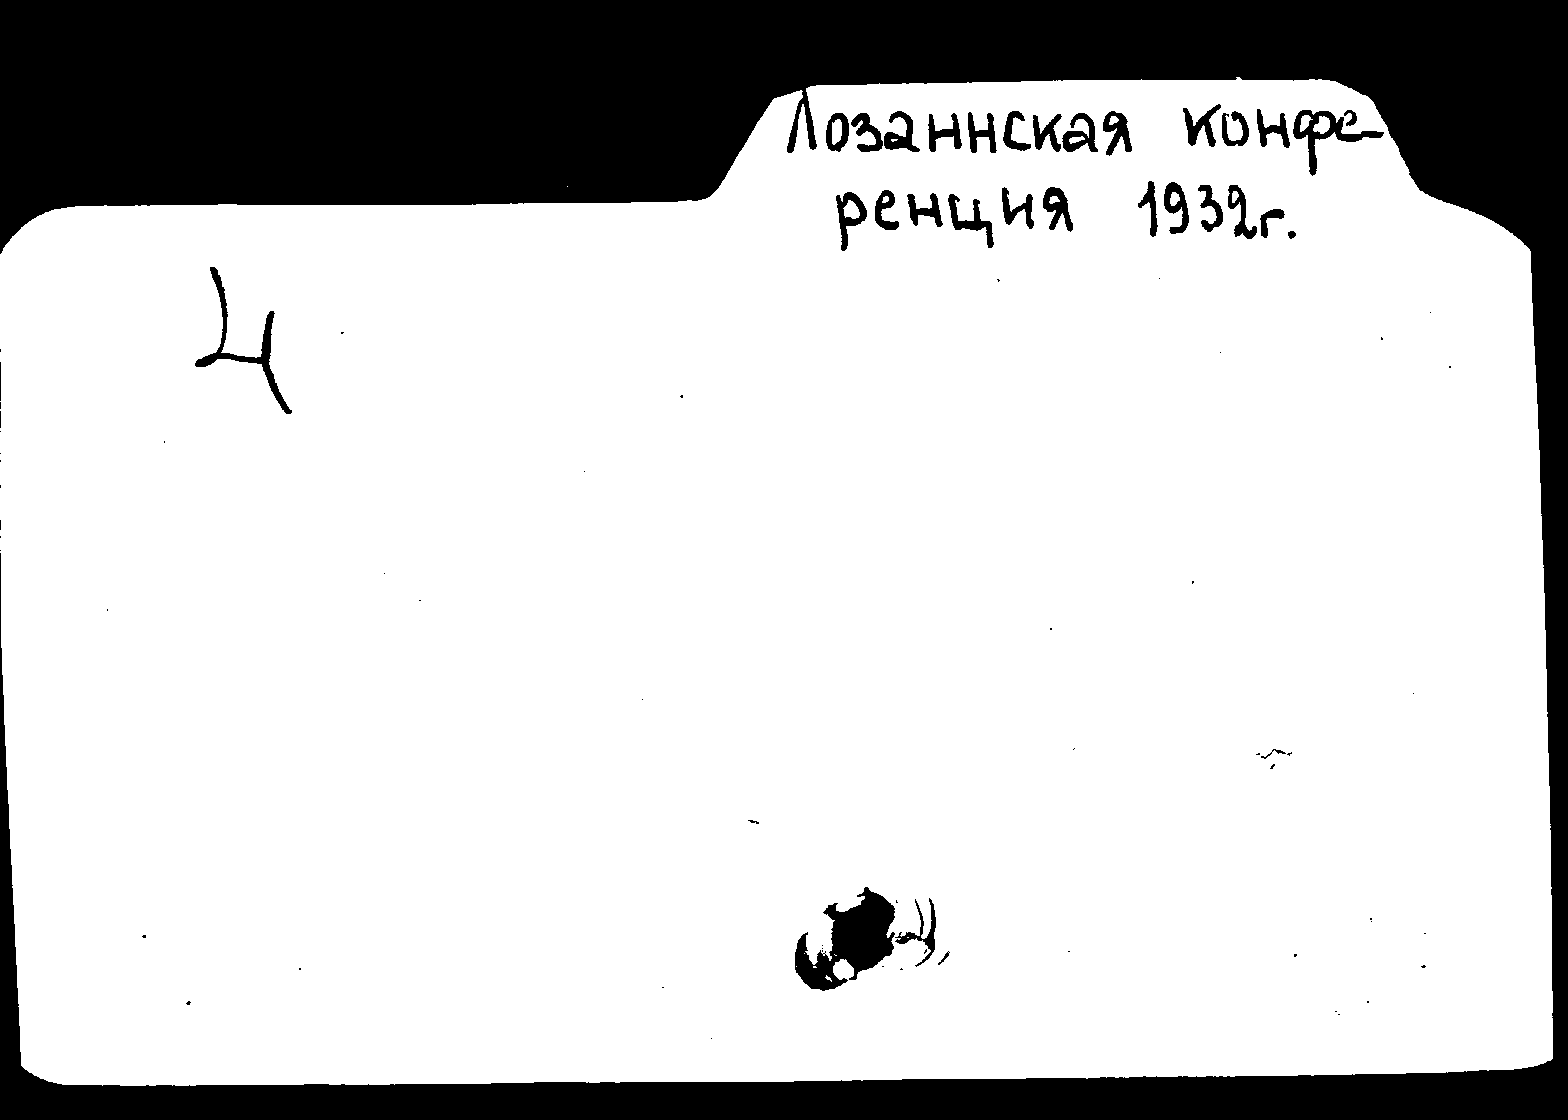 Лозаннская конфе-
ренция 1932г.
4